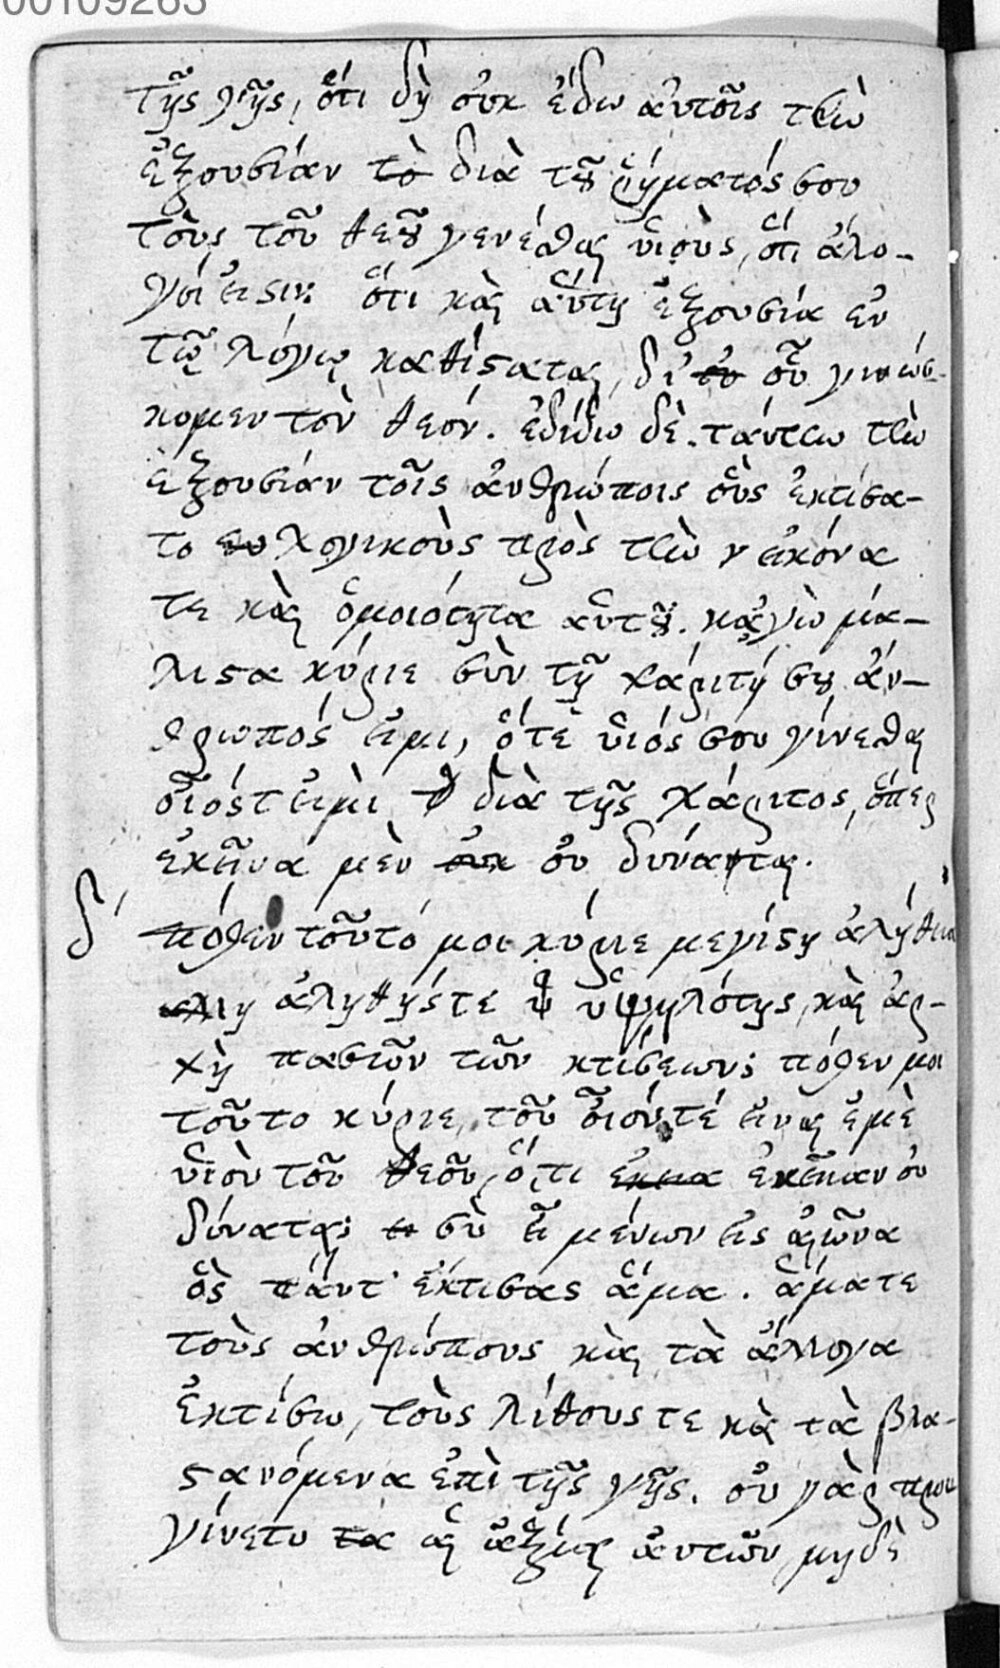 00109263
τῆς γῆς, ὅτι δὴ οὐκ ἔδω αὐτοῖς τὴν
ἐξουσίαν τὸ διὰ τοῦ ῥήματός σου
τοὺς τοῦ θεοῦ γενέσθαι υἱοὺς, ὅτι ἄλο-
γοί εἰσιν; ὅτι καὶ αὕτη ἐξουσία ἐν
τῷ λόγῳ καθίσαται, δι' οὗ γινώσ-
κομεν τὸν θεόν. ἐδίδω δὲ ταύτην τὴν
ἐξουσίαν τοῖς ἀνθρώποις οὓς ἐκτίσα-
το λογικοὺς πρὸς τὴν εἰκόνα
τε καὶ ὁμοιότητα αὑτοῦ. κᾀγὼ μά-
λιστα κύριε σὺν τῇ χάριτί σου ἄν-
θρωπός εἰμι, ὅτε υἱός σου γίνεσθαι
οἷός τ εἰμὶ διὰ τῆς χάριτος, ὅπερ
ἐκεῖνα μὲν οὐ δύναται.
δ' πόθεν τοῦτό μοι κύριε μεγίστη ἀλήθεια
ἀληθής τε ὑψηλότης, καὶ ἀρ-
χὴ πασῶν τῶν κτίσεων; πόθεν μοι
τοῦτο κύριε, τοῦ οἷόν τέ εἶναι ἐμὲ
υἱὸν τοῦ θεοῦ, ὅ,τι ἐκεῖναν οὐ
δύναται; σὺ εἶ μένων εἰς αἰῶνα
ὃς πάντ' ἔκτισας ἅμα. ἅμα τε
τοὺς ἀνθρώπους καὶ τὰ ἄλλογα
ἐκτίσω, τοὺς λίθους τε καὶ τὰ βλα-
στανόμενα ἐπὶ τῆς γῆς. οὐ γὰρ προε
γίνετο αἱ ἀξίαι αὐτῶν μηδὲ